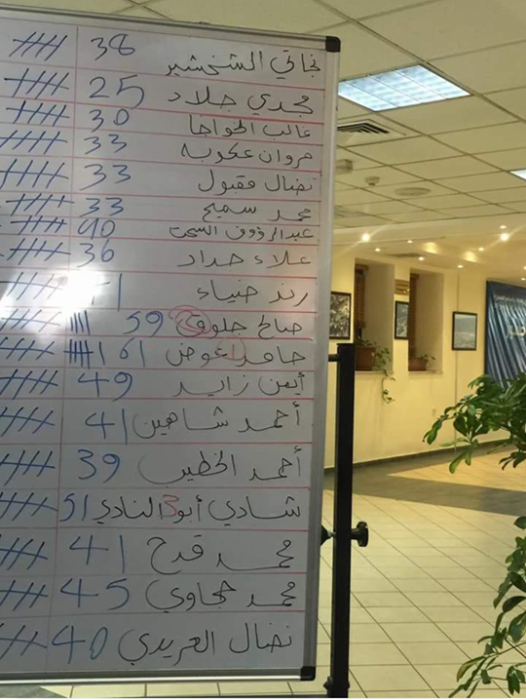 نجاتي الشخشير 38
مجدي جلاد 25
غالب الخواجا 30
مروان عكوبه 33
نضال فقبول 33
محمد سميح 33
عبدالرؤوف السخت 40
علاء حداد 36
رند ضياء
صالح حلوق 59
حامد عوض 61
أيمن زايد 49
أحمد شاهين 41
أحمد الخطيب 39
شادي أبو النادي 51
محمد قدح 41
محمد حجاوي 45
نضال العريدي 40